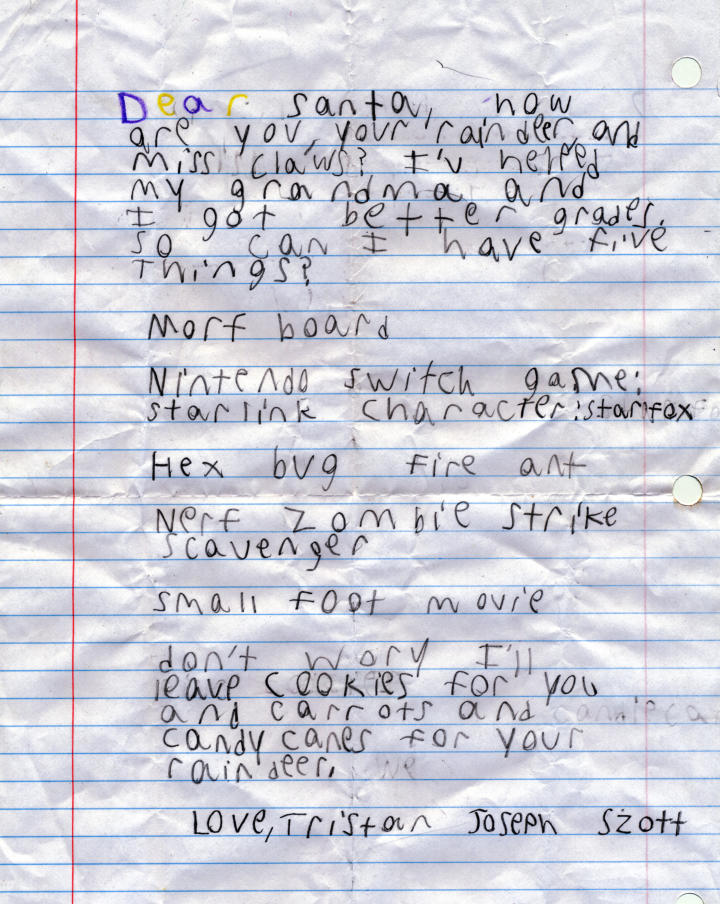 Dear santa, how
are you, your raindeer, and
miss claws? I'v helped
my grandma and
I got better grades.
so can I have five
things?
Morf board
Nintendo switch game:
starlink character:starfox
Hex bug fire ant
Nerf zombie strike
scavenger
small foot movie
don't wory I'll
leave cookies for you
and carrots and
candy canes for your
raindeer.
Love,Tristan Joseph Szott